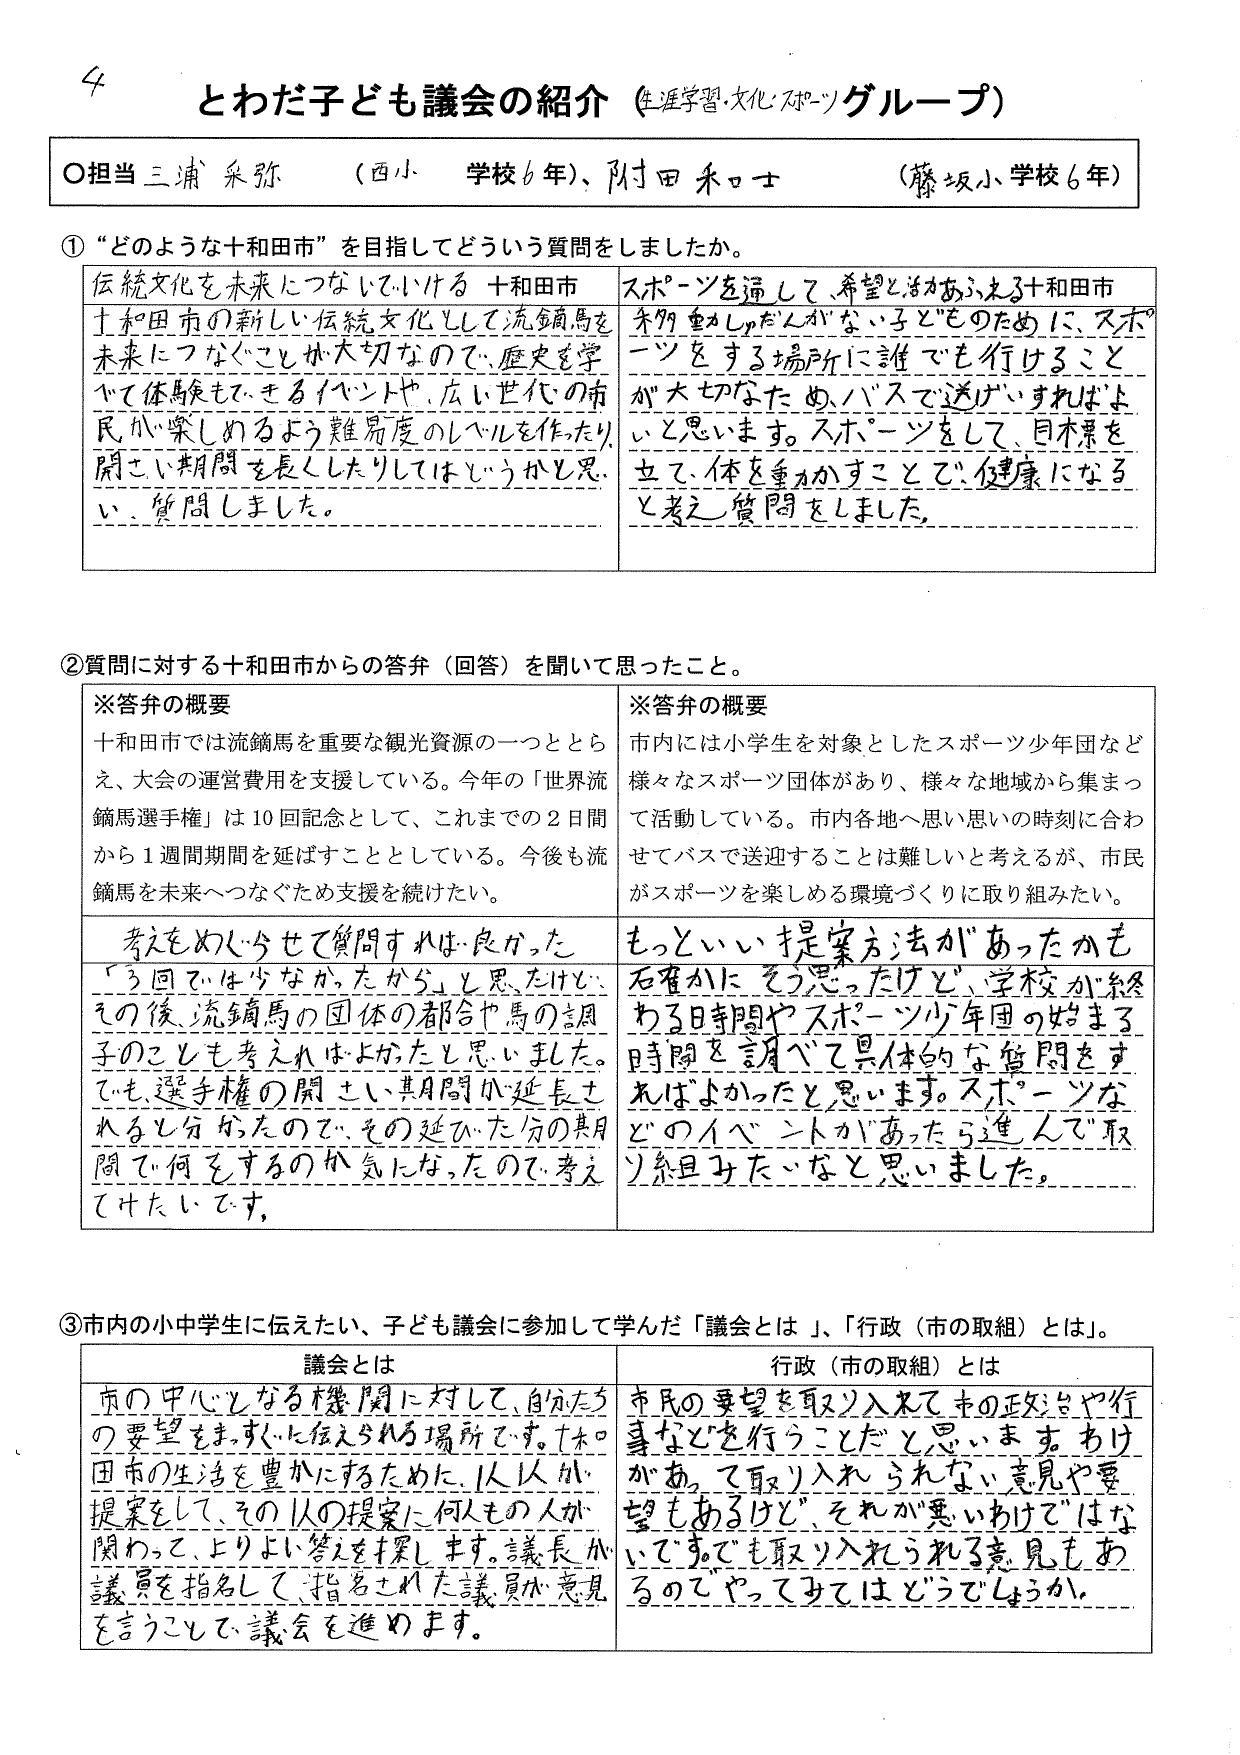 4
とわだ子ども議会の紹介（生涯学習・文化・スポーツグループ）
〇担当 三浦 采弥 （西小 学校6年）、附田 和士 （藤坂小学校6年）
①“どのような十和田市”を目指してどういう質問をしましたか。
伝統文化を未来につないでいける 十和田市
十和田市の新しい伝統文化として流鏑馬を
未来につなぐことが大切なので、歴史を学
べて体験もできるイベントや、広い世代の市
民が楽しめるよう難易度のレベルを作ったり、
開さい期間を長くしたりしてはどうかと思
い、質問しました。
スポーツを通して、希望と活力あふれる十和田市
移動しゅだんがない子どものために、スポ
ーツをする場所に誰でも行けること
が大切なため、バスで送げいすればよ
いと思います。スポーツをして、目標を
立て、体を動かすことで、健康になる
と考え質問をしました。
②質問に対する十和田市からの答弁（回答）を聞いて思ったこと。
※答弁の概要
十和田市では流鏑馬を重要な観光資源の一つととら
え、大会の運営費用を支援している。今年の「世界流
鏑馬選手権」は10回記念として、これまでの２日間
から１週間期間を延ばすこととしている。今後も流
鏑馬を未来へつなぐため支援を続けたい。
※答弁の概要
市内には小学生を対象としたスポーツ少年団など
様々なスポーツ団体があり、様々な地域から集まっ
て活動している。市内各地へ思い思いの時刻に合わ
せてバスで送迎することは難しいと考えるが、市民
がスポーツを楽しめる環境づくりに取り組みたい。
考えをめぐらせて質問すれば良かった
「3回では少なかったから」と思ったけど、
その後、流鏑馬の団体の都合や馬の調
子のことも考えればよかったと思いました。
でも、選手権の開さい期間が延長さ
れると分かったので、その延びた分の期
間で何をするのか気になったので考え
てみたいです。
もっといい提案方法があったかも
確かにそう思ったけど、学校が終
わる時間やスポーツ少年団の始まる
時間を調べて具体的な質問をす
ればよかったと思います。スポーツな
どのイベントがあったら進んで取
り組みたいなと思いました。
③市内の小中学生に伝えたい、子ども議会に参加して学んだ「議会とは 」、「行政（市の取組）とは」。
議会とは
市の中心となる機関に対して、自分たち
の要望をまっすぐに伝えられる場所です。十和
田市の生活を豊かにするために、1人1人が
提案をして、その1人の提案に何人もの人が
関わって、よりよい答えを探します。議長が
議員を指名して、指名された議員が意見
を言うことで議会を進めます。
行政（市の取組）とは
市民の要望を取り入れて市の政治や行
事などを行うことだと思います。わけ
があって取り入れられない意見や要
望もあるけど、それが悪いわけではな
いです。でも取り入れられる意見もあ
るのでやってみてはどうでしょうか。